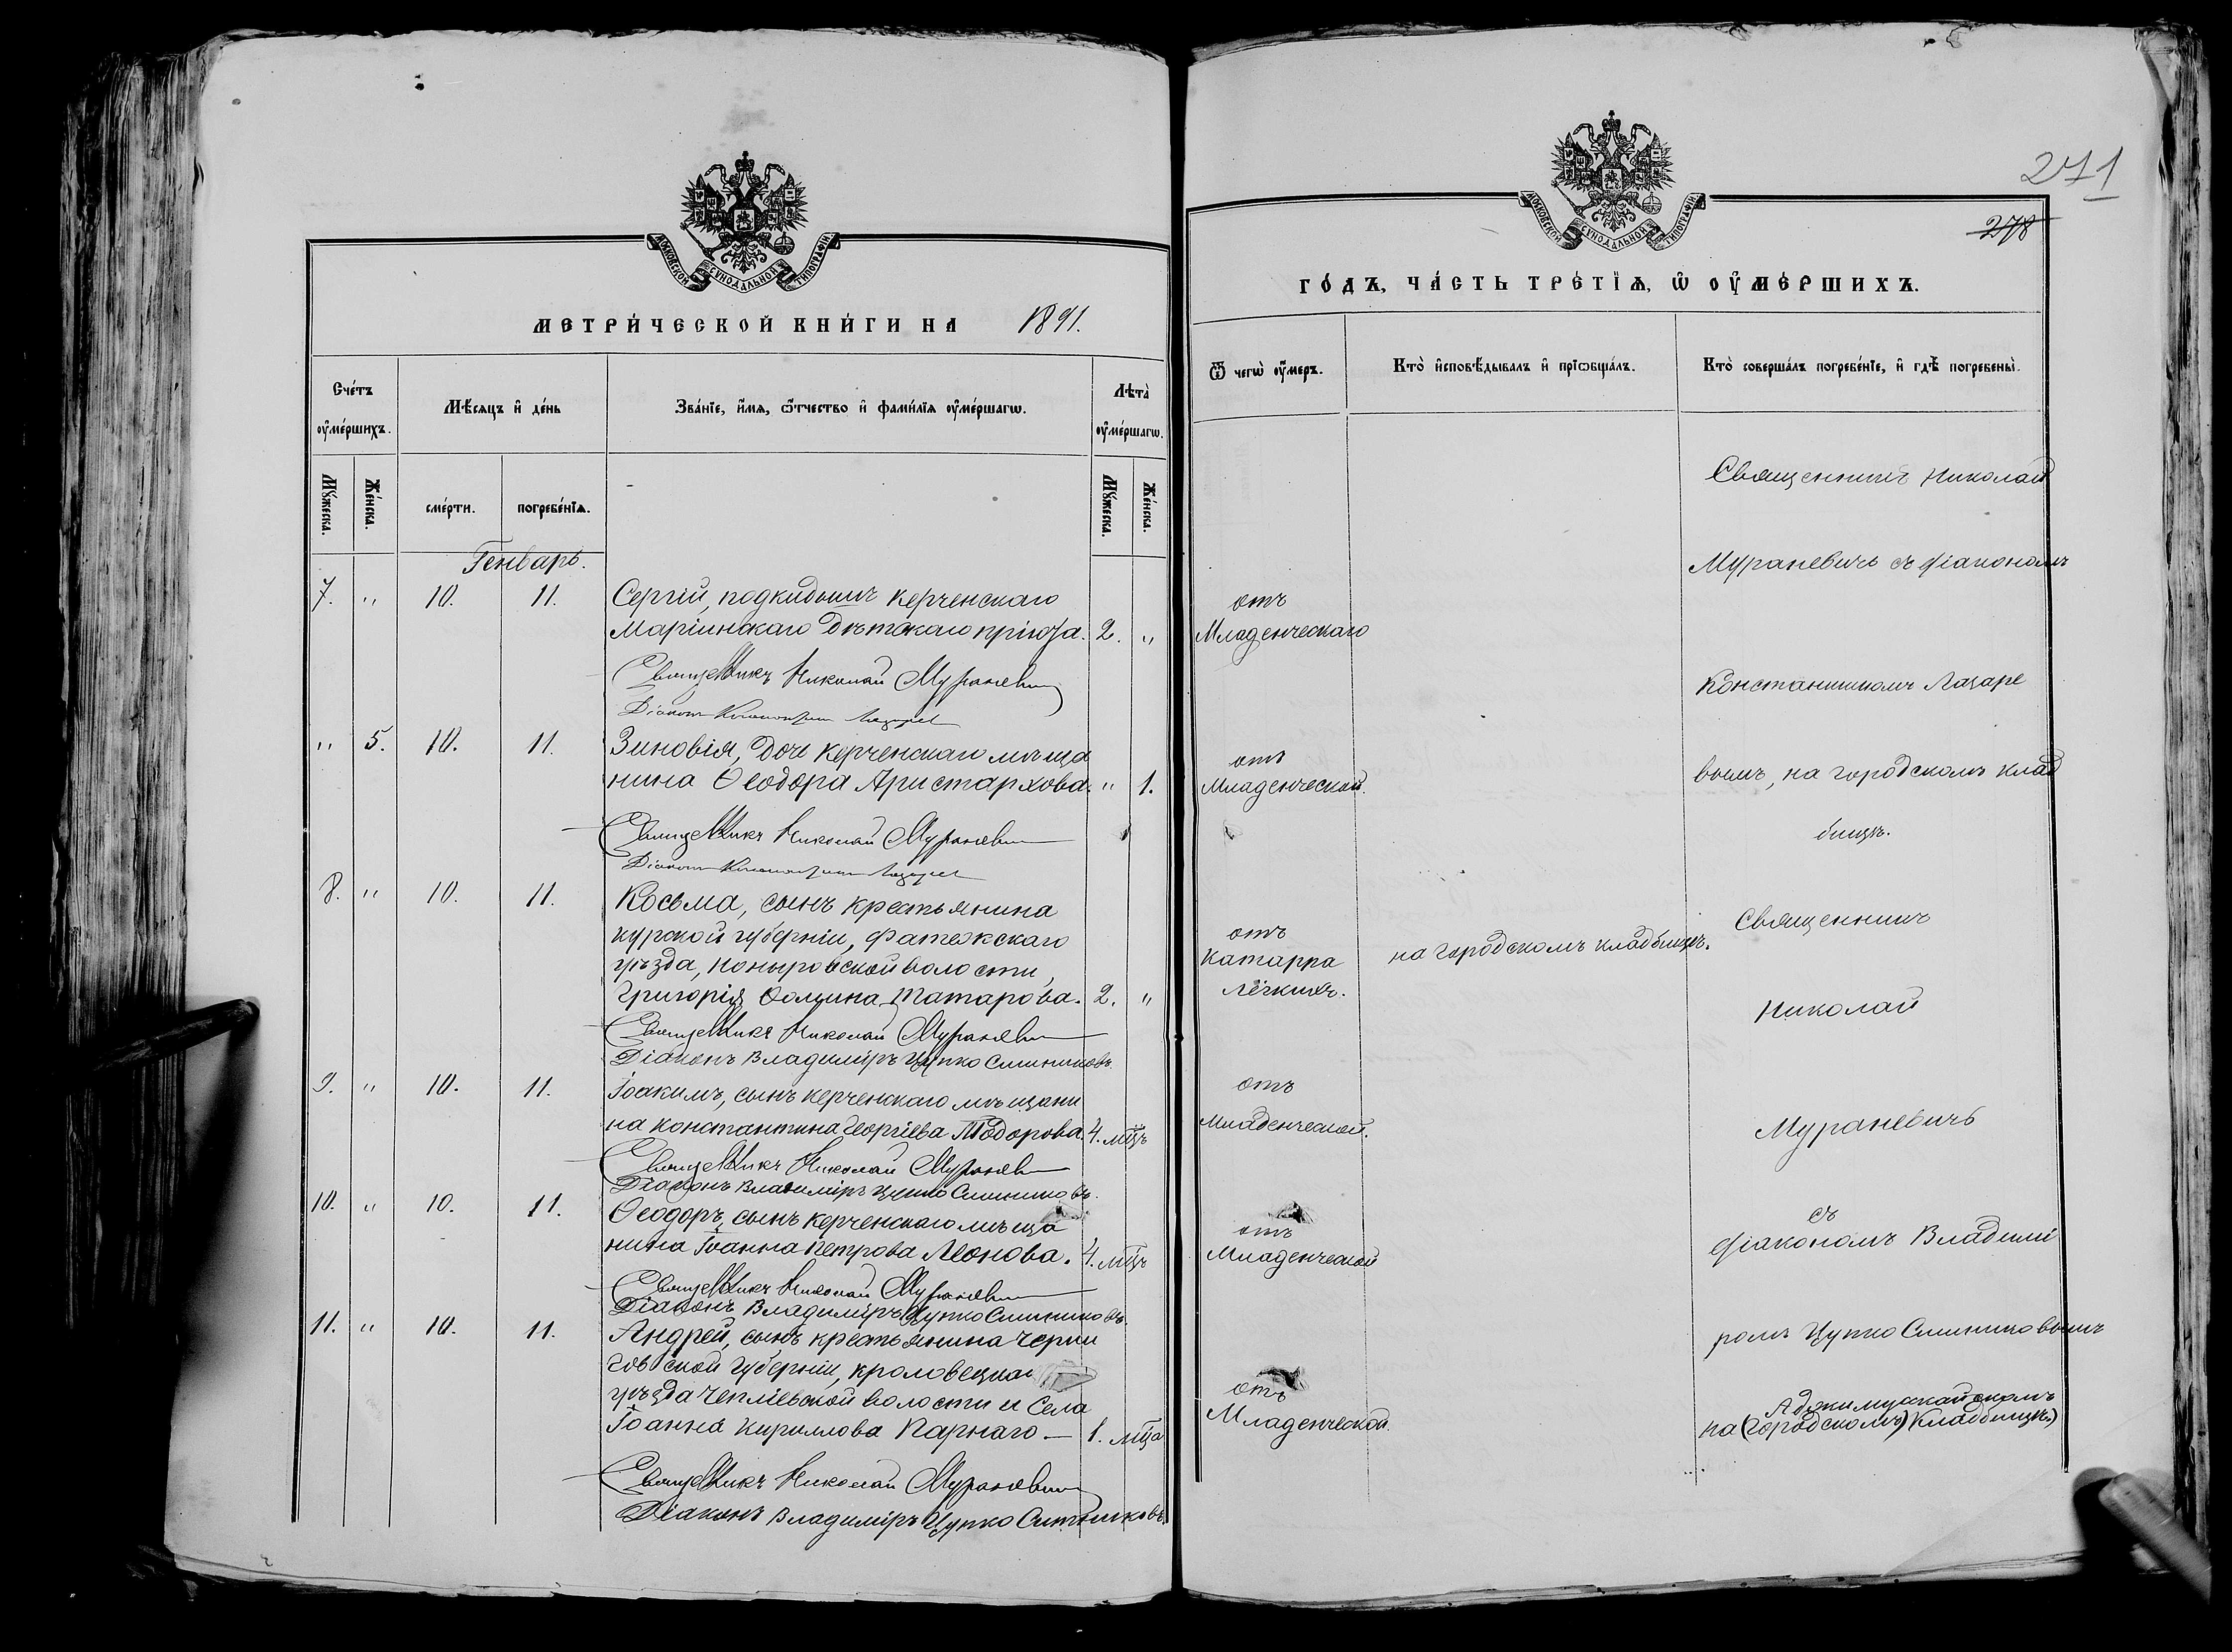 МОСКОВСКОЙ СѴНОДАЛЬНОЙ ТИПОГРАФІИ
МЕТРИ́ЧЕСКОЙ КНИ́ГИ НА 1891.
Сче́тъ ѹ҆ме́ршихъ.
Мѣ́сяцъ и҆ де́нь
Зва́нїе, и҆́мѧ, ѻ҆́тчество и҆ фами́лїѧ ѹ҆ме́ршагѡ.
Лѣта̀ ѹ҆ме́ршагѡ.
Мꙋ́жеска.
Же́нска.
сме́рти.
погребе́нїѧ.
Мꙋ́жеска.
Же́нска.
Генварь.
7. " 10. 11. Сергій, подкидышъ керченскаго
Маріинскаго Дѣтскаго пріюта. 2. "
Священникъ Николай Мураневич
Діаконъ Константин Лазарев
" 5. 10. 11. Зиновія, дочь керченскаго мѣща
нина Ѳеодора Аристархова. " 1.
Священникъ Николай Мураневич
Діаконъ Константин Лазарев
8. " 10. 11. Косьма, сынъ крестьянина
курской губерніи, Фатежскаго
уѣзда, Поныровской волости,
Григорія Ѳомина Татарова. 2. "
Священникъ Николай Мураневич
Діаконъ Владиміръ Цупко Ситниковъ.
9. " 10. 11. Іоакимъ, сынъ керченскаго мѣщани
на Константина Георгіева Тодорова. 4. мцъ
Священникъ Николай Мураневич
Діаконъ Владиміръ Цупко Ситниковъ.
10. " 10. 11. Ѳеодоръ, сынъ керченскаго мѣща
нина Іоанна Петрова Леонова. 4. мцъ
Священникъ Николай Мураневич
Діаконъ Владиміръ Цупко Ситниковъ.
11. " 10. 11. Андрей, сынъ крестьянина Черни
говской губерніи, кролевецкаг
уѣзда Чепліевской волости и Села
Іоанна Кириллова Парнаго — 1. мца
Священникъ Николай Мураневич
Діаконъ Владиміръ Цупко Ситниковъ.
271
278
МОСКОВСКОЙ СѴНОДАЛЬНОЙ ТИПОГРАФІИ
ГО́ДЪ, ЧА́СТЬ ТРЕ́ТЇѦ, Ѡ҆ ОУ҆МЕ́РШИХЪ.
Ѿ чегѡ̀ ѹ҆́меръ.
Кто̀ и҆сповѣ́дывалъ и҆ прїѡбща́лъ.
Кто̀ соверша́лъ погребе́нїе, и҆ гдѣ̀ погребены̀.
Священникъ Николай
Мураневичъ съ діакономъ
отъ
Младенческаго
Константиномъ Лазаре
отъ
Младенческой.
вымъ, на городскомъ клад
бищѣ.
отъ
катарра
лёгкихъ.
на городскомъ кладбищѣ.
Священникъ
Николай
отъ
Младенческой.
Мураневичъ
отъ
Младенческой
съ
діакономъ Владимі
ромъ Цупко Ситниковымъ
отъ
Младенческой.
Аджимушкайскомъ
на (городскомъ) кладбищѣ)